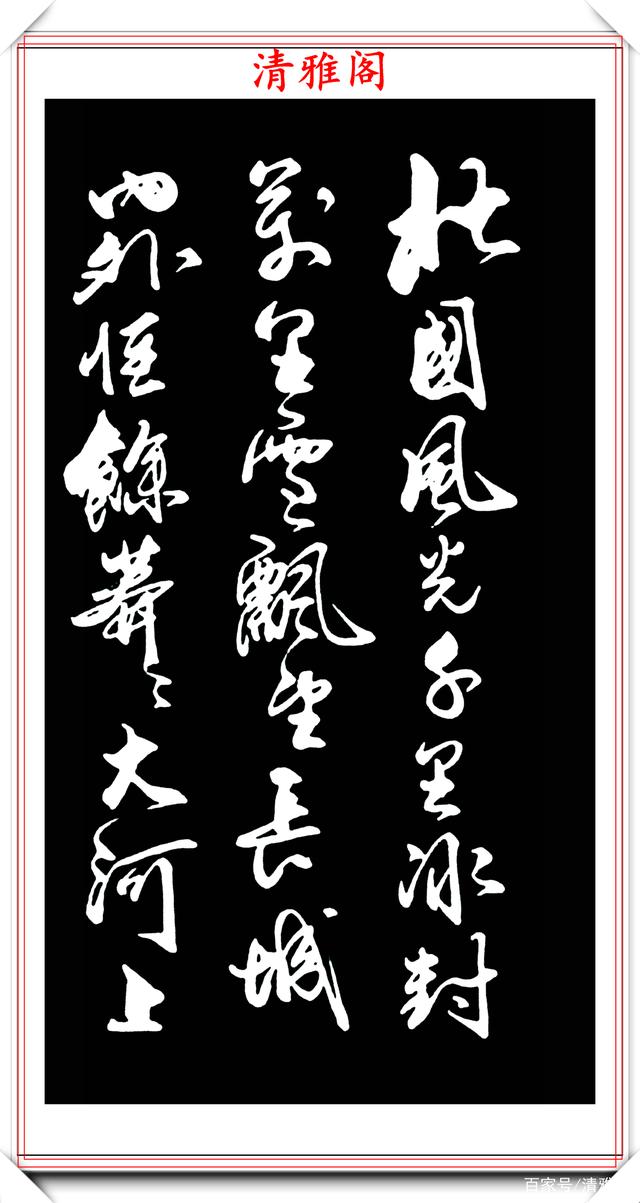 清雅阁
北國風光千里冰封
萬里雪飄望長城
内外惟餘莽〻大河上
百家号/清雅